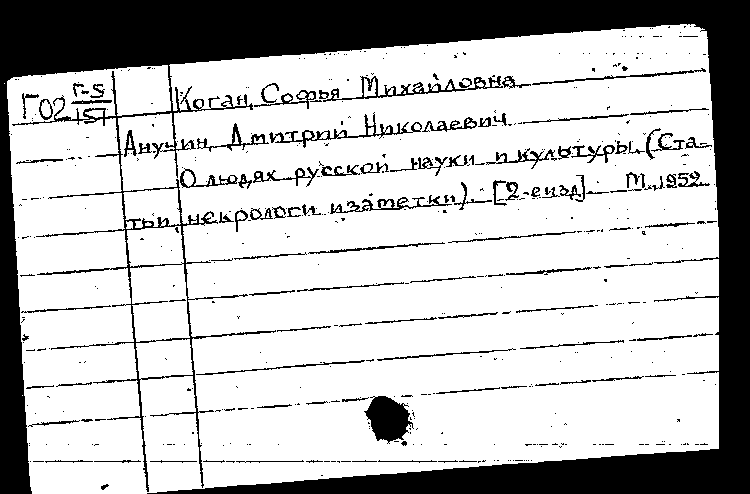 Г02 Г-5/157 Коган, Софья Михайловна
Анучин, Дмитрий Николаевич
О людях русской науки и культуры. (Ста-
тьи, некрологи и заметки). [2-е изд]. М., 1952